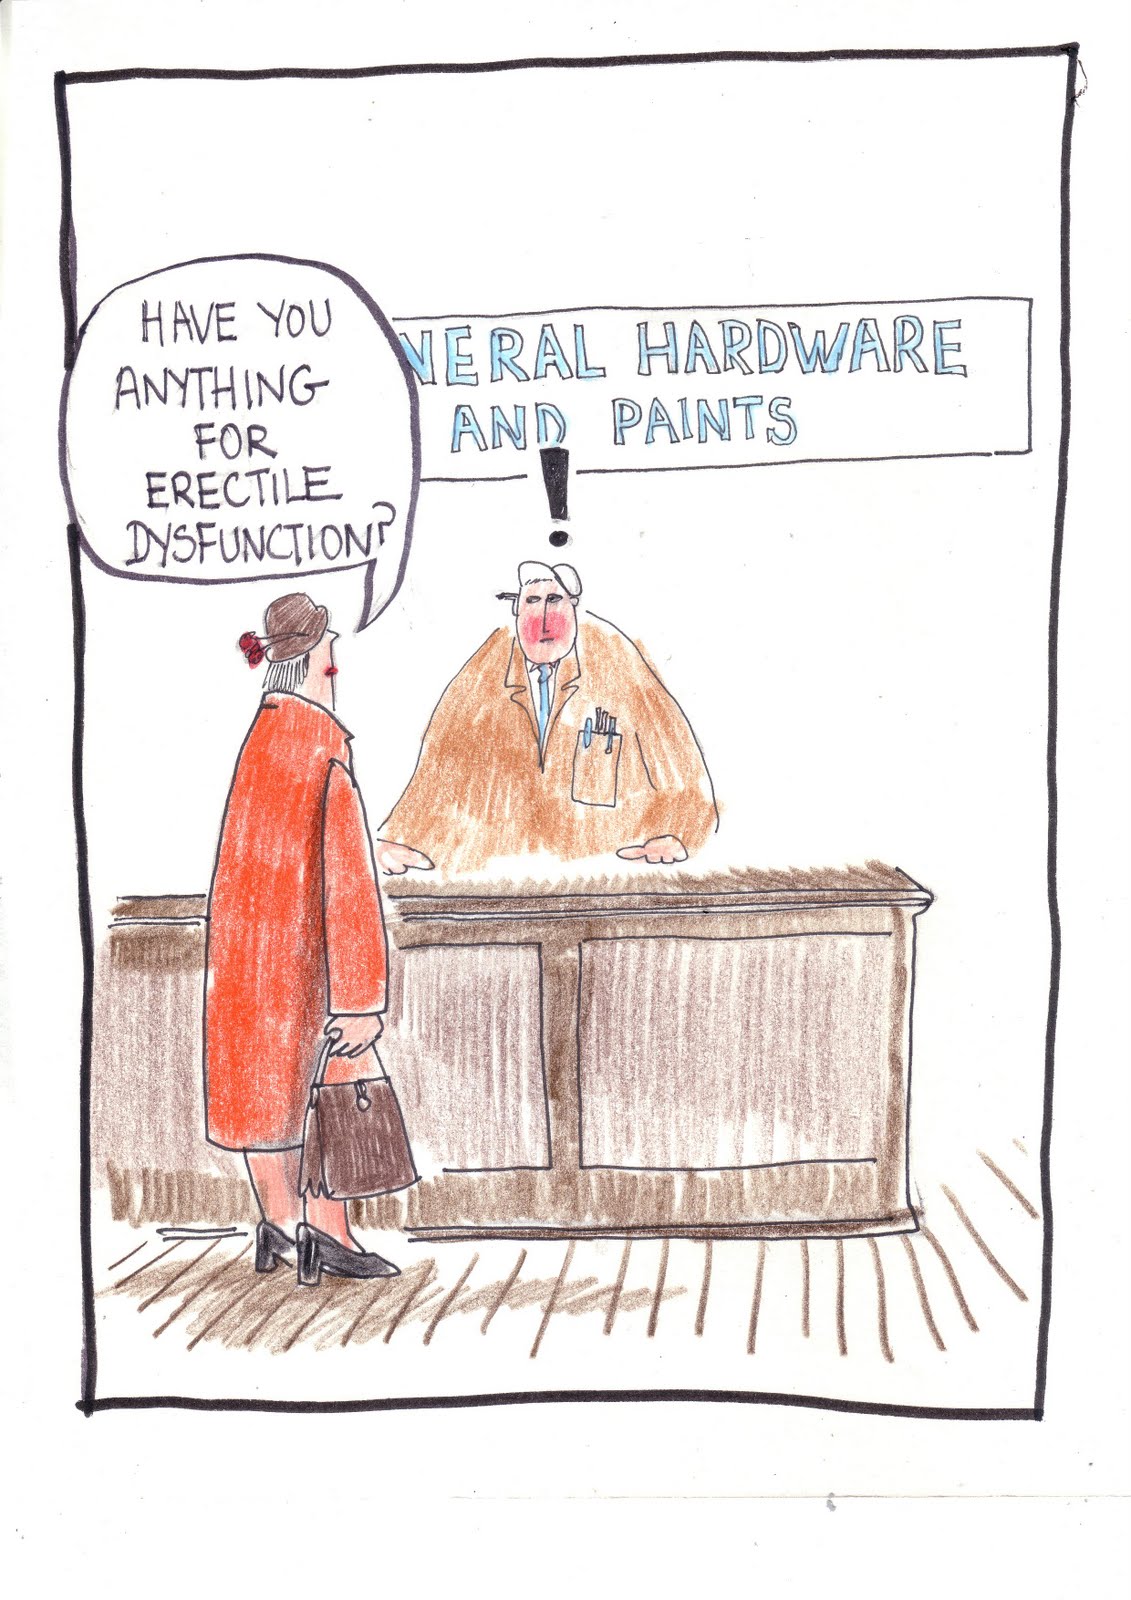 HAVE YOU
ANYTHING
FOR
ERECTILE
DYSFUNCTION?
NERAL HARDWARE
AND PAINTS
!